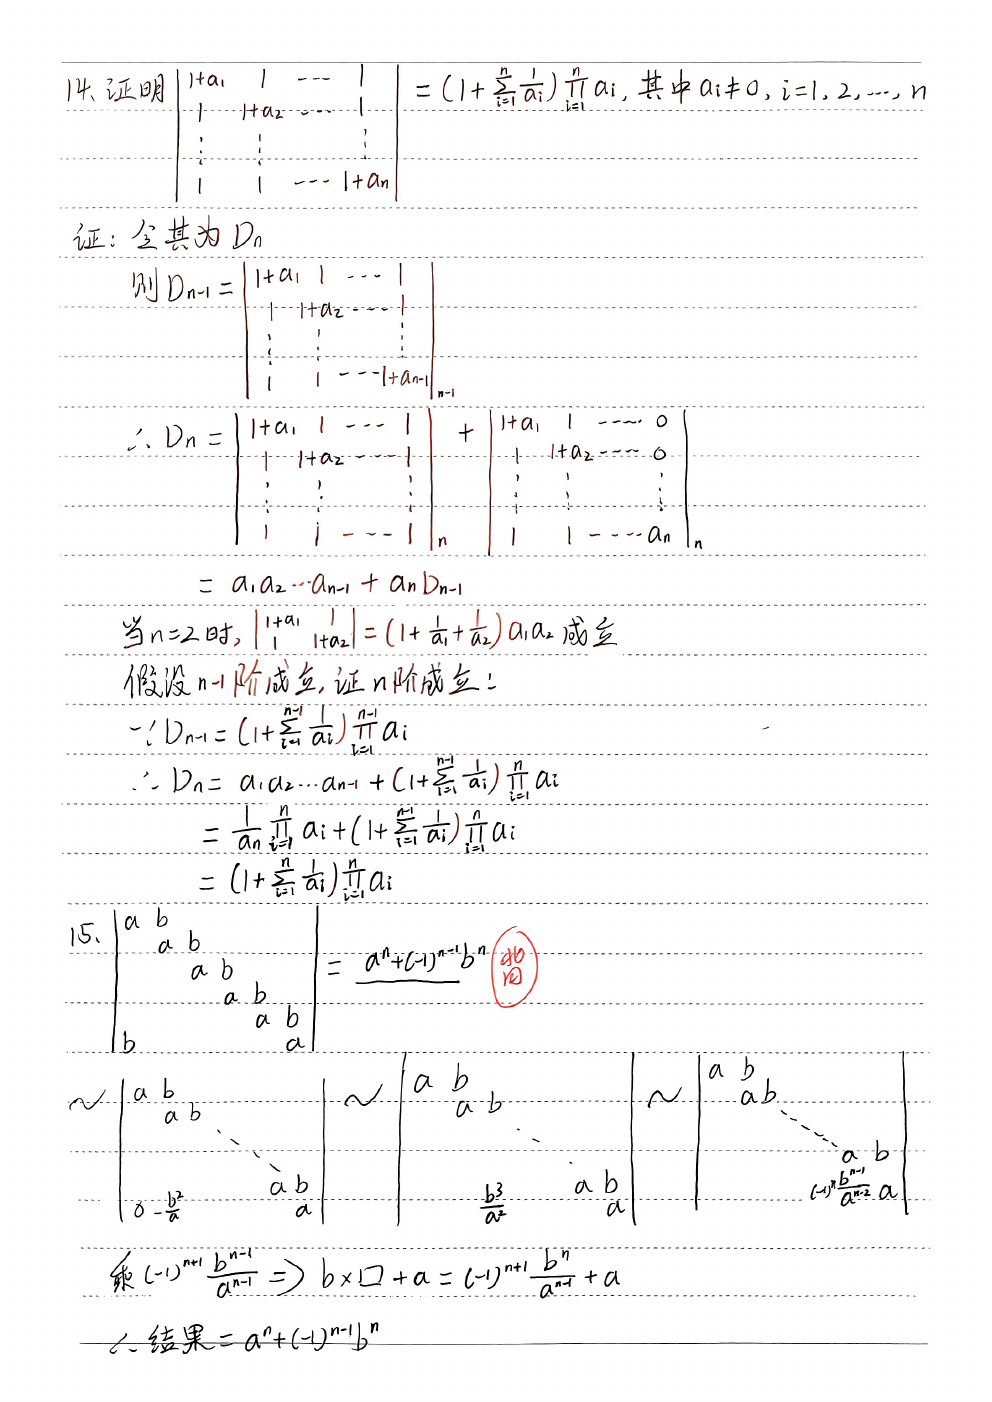 14、证明 |1+a₁ 1 ---- 1| = (1+∑_{i=1}^{n} 1/aᵢ)∏_{i=1}^{n} aᵢ, 其中 aᵢ≠0, i=1, 2, ..., n
1 1+a₂ ---- 1
⋮ ⋮ ⋮
1 1 ---- 1+aₙ
证: 令其为 Dₙ
则 Dₙ₋₁ = |1+a₁ 1 ---- 1|
1 1+a₂ ---- 1
⋮ ⋮ ⋮
1 1 ---- 1+aₙ₋₁ |ₙ₋₁
∴ Dₙ = |1+a₁ 1 ---- 1| + |1+a₁ 1 ----- 0|
1 1+a₂ ---- 1 1 1+a₂ ---- 0
⋮ ⋮ ⋮ ⋮ ⋮ ⋮
1 1 ---- 1 |ₙ 1 1 ----- aₙ |ₙ
= a₁a₂···aₙ₋₁ + aₙDₙ₋₁
当n=2时, |1+a₁ 1; 1 1+a₂| = (1+1/a₁+1/a₂)a₁a₂ 成立
假设n-1阶成立, 证n阶成立:
∵ Dₙ₋₁ = (1+∑_{i=1}^{n-1} 1/aᵢ)∏_{i=1}^{n-1} aᵢ
∴ Dₙ = a₁a₂...aₙ₋₁ + (1+∑_{i=1}^{n-1} 1/aᵢ)∏_{i=1}^{n} aᵢ
= 1/aₙ ∏_{i=1}^{n} aᵢ + (1+∑_{i=1}^{n-1} 1/aᵢ)∏_{i=1}^{n} aᵢ
= (1+∑_{i=1}^{n} 1/aᵢ)∏_{i=1}^{n} aᵢ
15、 |a b
a b
a b = aⁿ+(-1)ⁿ⁻¹bⁿ
a b
a b
b a|
~ |a b ~ |a b ~ |a b
a b a b ab
a b a b a b
0 -b²/a a| b³/a² a| (-1)ⁿ bⁿ⁻¹/aⁿ⁻² a|
乘 (-1)ⁿ⁺¹ bⁿ⁻¹/aⁿ⁻¹ => b×□+a = (-1)ⁿ⁺¹ bⁿ/aⁿ⁻¹ + a
∴ 结果 = aⁿ+(-1)ⁿ⁻¹bⁿ